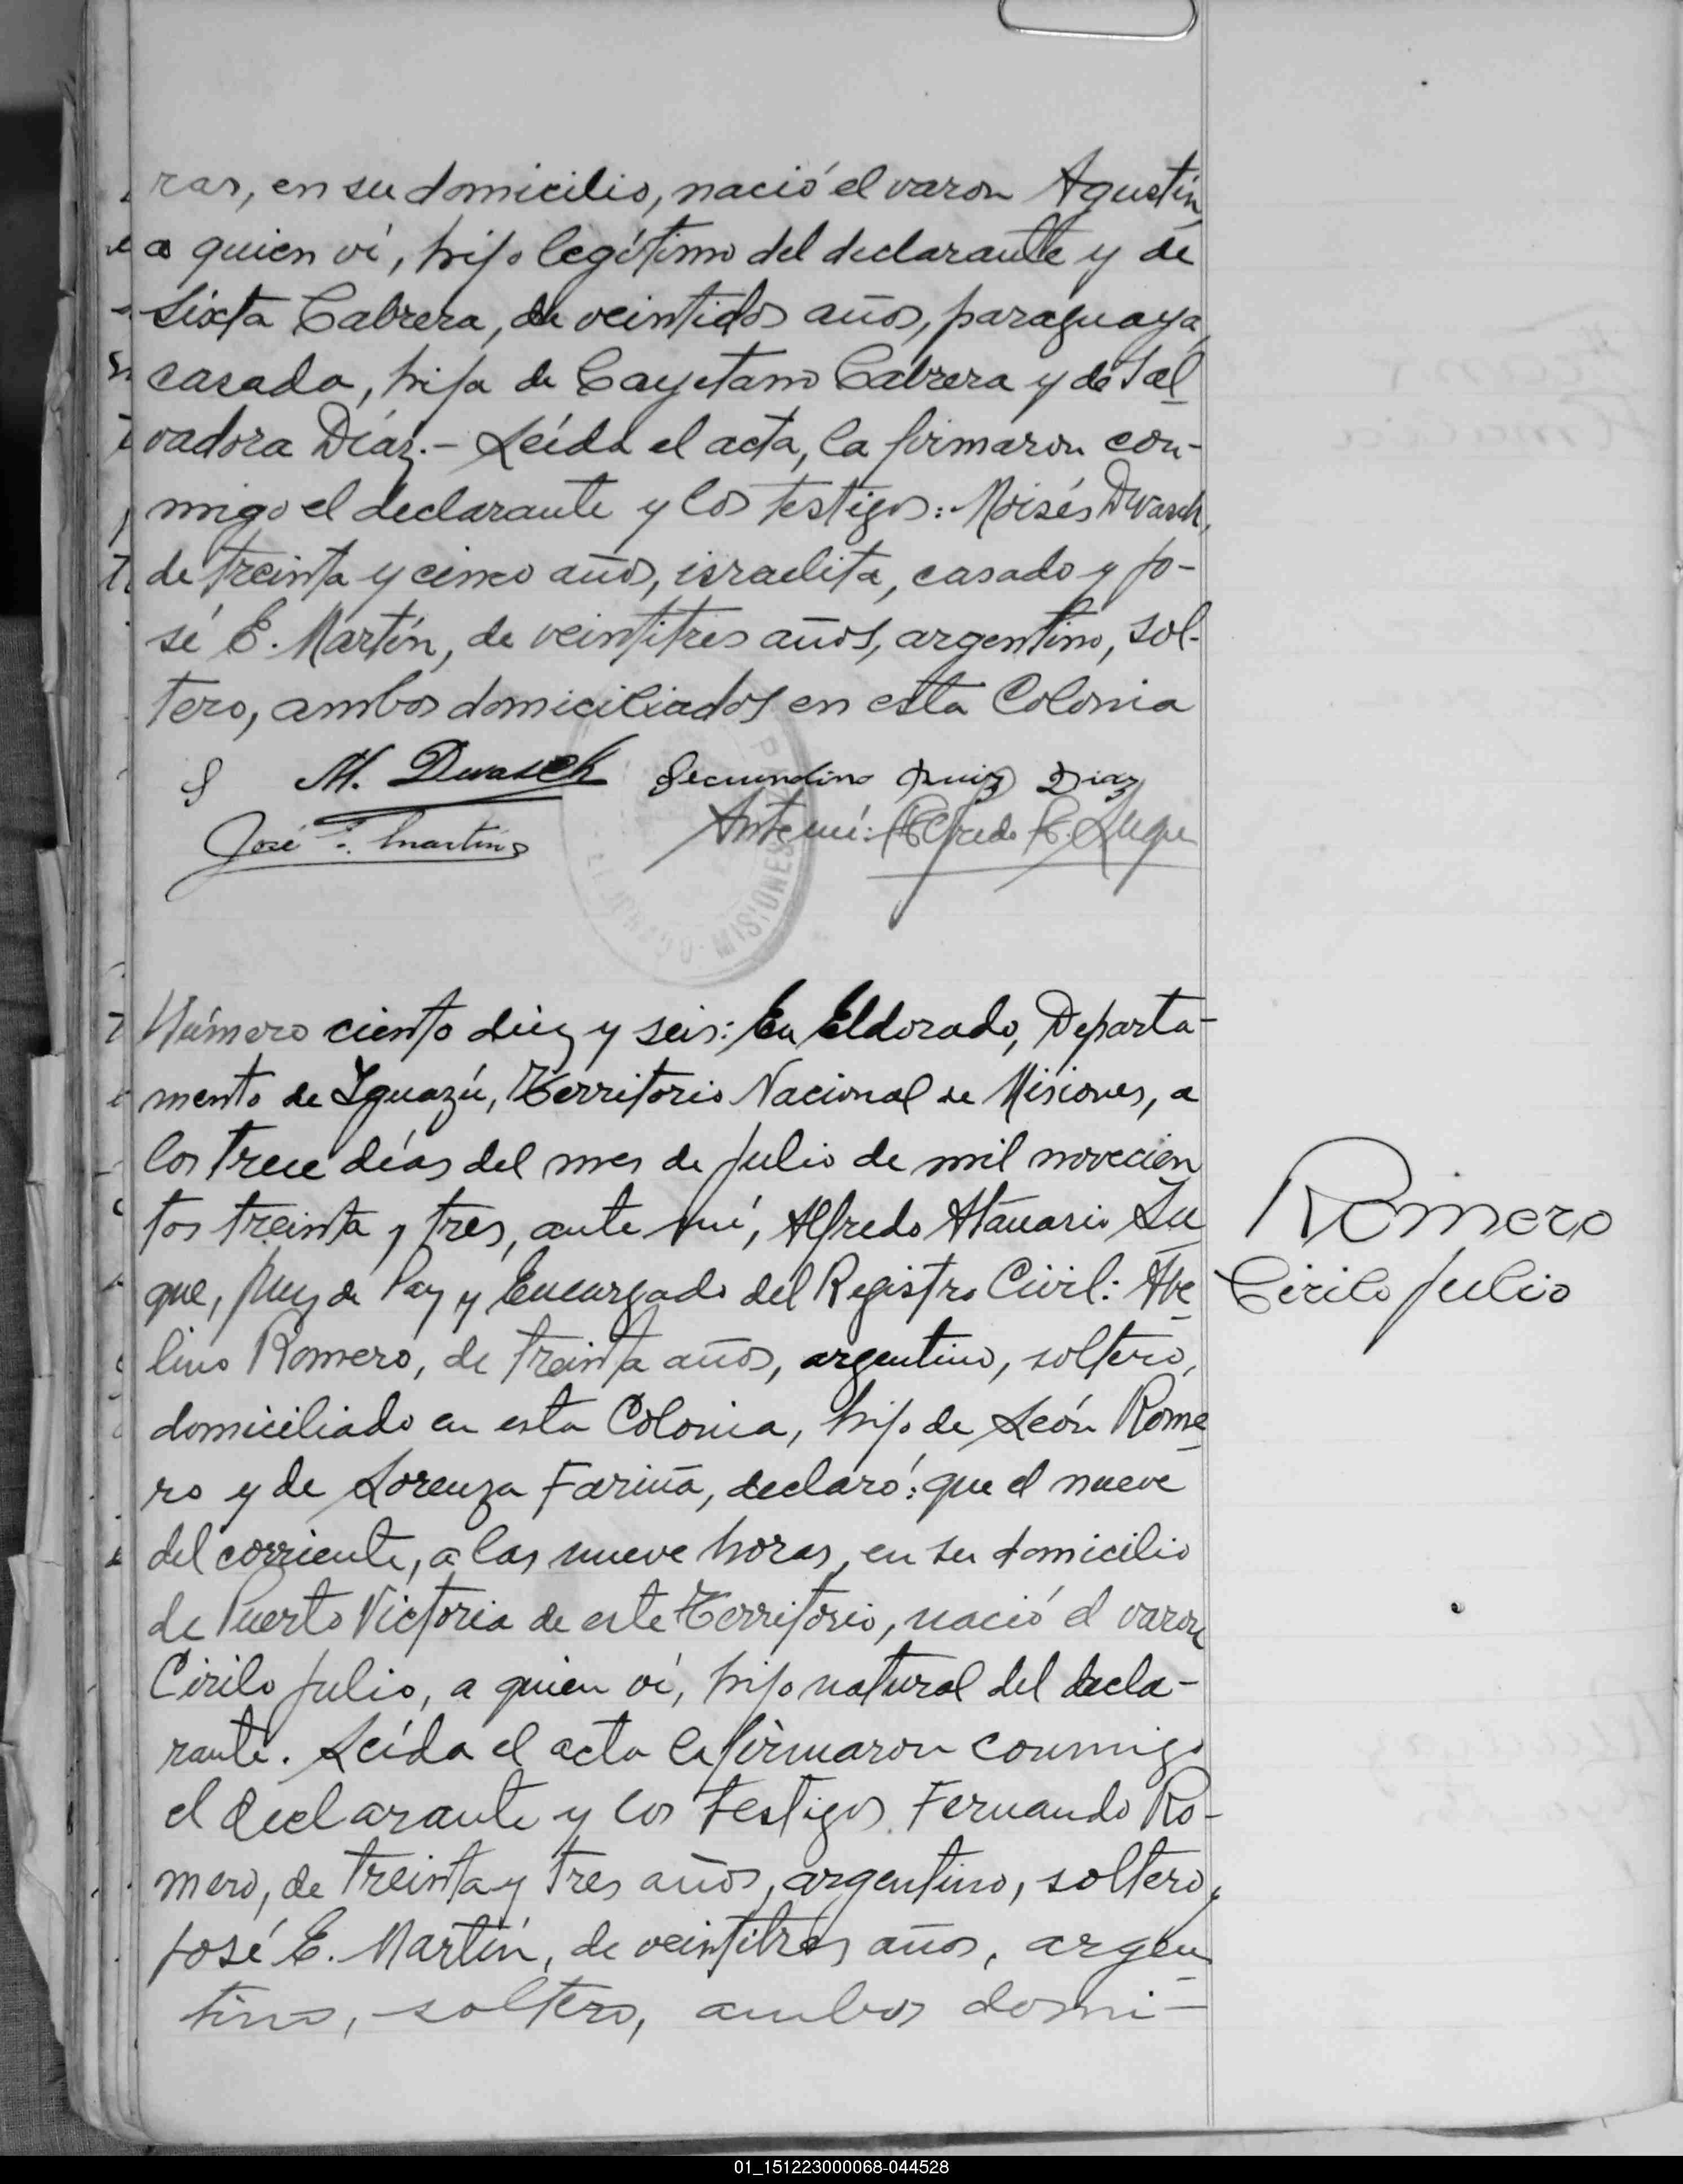 ras, en su domicilio, nació el varon Agustín
a quien ví, hijo legítimo del declarante y de
Sixta Cabrera, de veintidos años, paraguaya,
casada, hija de Cayetano Cabrera y de Sal
vadora Díaz.- Leída el acta, la firmaron con-
migo el declarante y los testigos: Moisés Dwasch,
de treinta y cinco años, israelita, casado y Jo-
sé E. Martín, de veintitres años, argentino, sol-
tero, ambos domiciliados en esta Colonia
M. Dwasch Secundino Ruiz Diaz
José E. Martín Ante mí: Alfredo A. Luque
ELDORADO - MISIONES
Número ciento diez y seis: En Eldorado, Departa-
mento de Iguazú, Territorio Nacional de Misiones, a
los trece días del mes de Julio de mil novecien
tos treinta y tres, ante mí, Alfredo Atanasio Lu
que, Juez de Paz y Encargado del Registro Civil: Ave
lino Romero, de treinta años, argentino, soltero,
domiciliado en esta Colonia, hijo de León Rome
ro y de Lorenza Fariña, declaró: que el nueve
del corriente, a las nueve horas, en su domicilio
de Puerto Victoria de este Territorio, nació el varon
Cirilo Julio, a quien ví, hijo natural del decla-
rante. Leída el acta la firmaron conmigo
el declarante y los testigos Fernando Ro-
mero, de treinta y tres años, argentino, soltero y
José E. Martín, de veintitres años, argen
tino, soltero, ambos domi-
Romero
Cirilo Julio
01_151223000068-044528